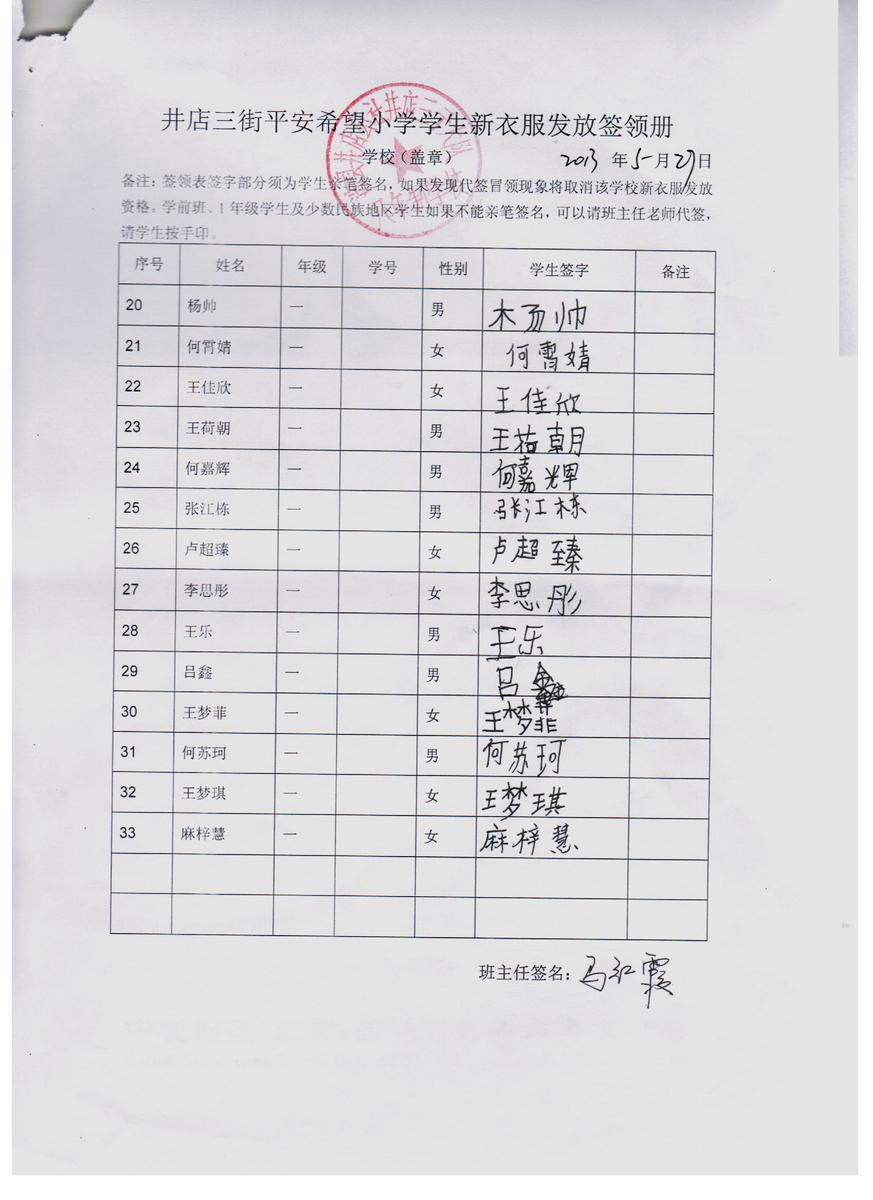 井店三街平安希望小学学生新衣服发放签领册
学校（盖章） 2013 年 5 月 27 日
备注：签领表签字部分须为学生亲笔签名，如果发现代签冒领现象将取消该学校新衣服发放
资格。学前班、1 年级学生及少数民族地区学生如果不能亲笔签名，可以请班主任老师代签，
请学生按手印。
序号 姓名 年级 学号 性别 学生签字 备注
20 杨帅 一 男 杨帅
21 何霄婧 一 女 何霄婧
22 王佳欣 一 女 王佳欣
23 王荷朝 一 男 王荷朝
24 何嘉辉 一 男 何嘉辉
25 张江栋 一 男 张江栋
26 卢超臻 一 女 卢超臻
27 李思彤 一 女 李思彤
28 王乐 一 男 王乐
29 吕鑫 一 男 吕鑫
30 王梦菲 一 女 王梦菲
31 何苏珂 一 男 何苏珂
32 王梦琪 一 女 王梦琪
33 麻梓慧 一 女 麻梓慧
班主任签名：马红霞